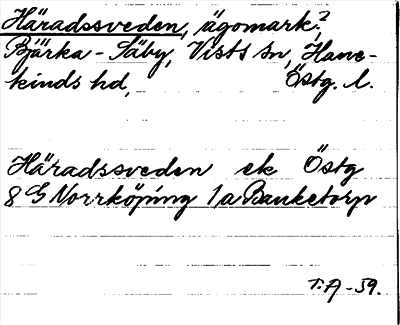 Häradssveden, ägomark?
Bjärka-Säby, Vists sn, Hane-
kinds hd, Östg. l.
Häradssveden ek Östg
8 G Norrköping 1a Banketorp
T.A -59.